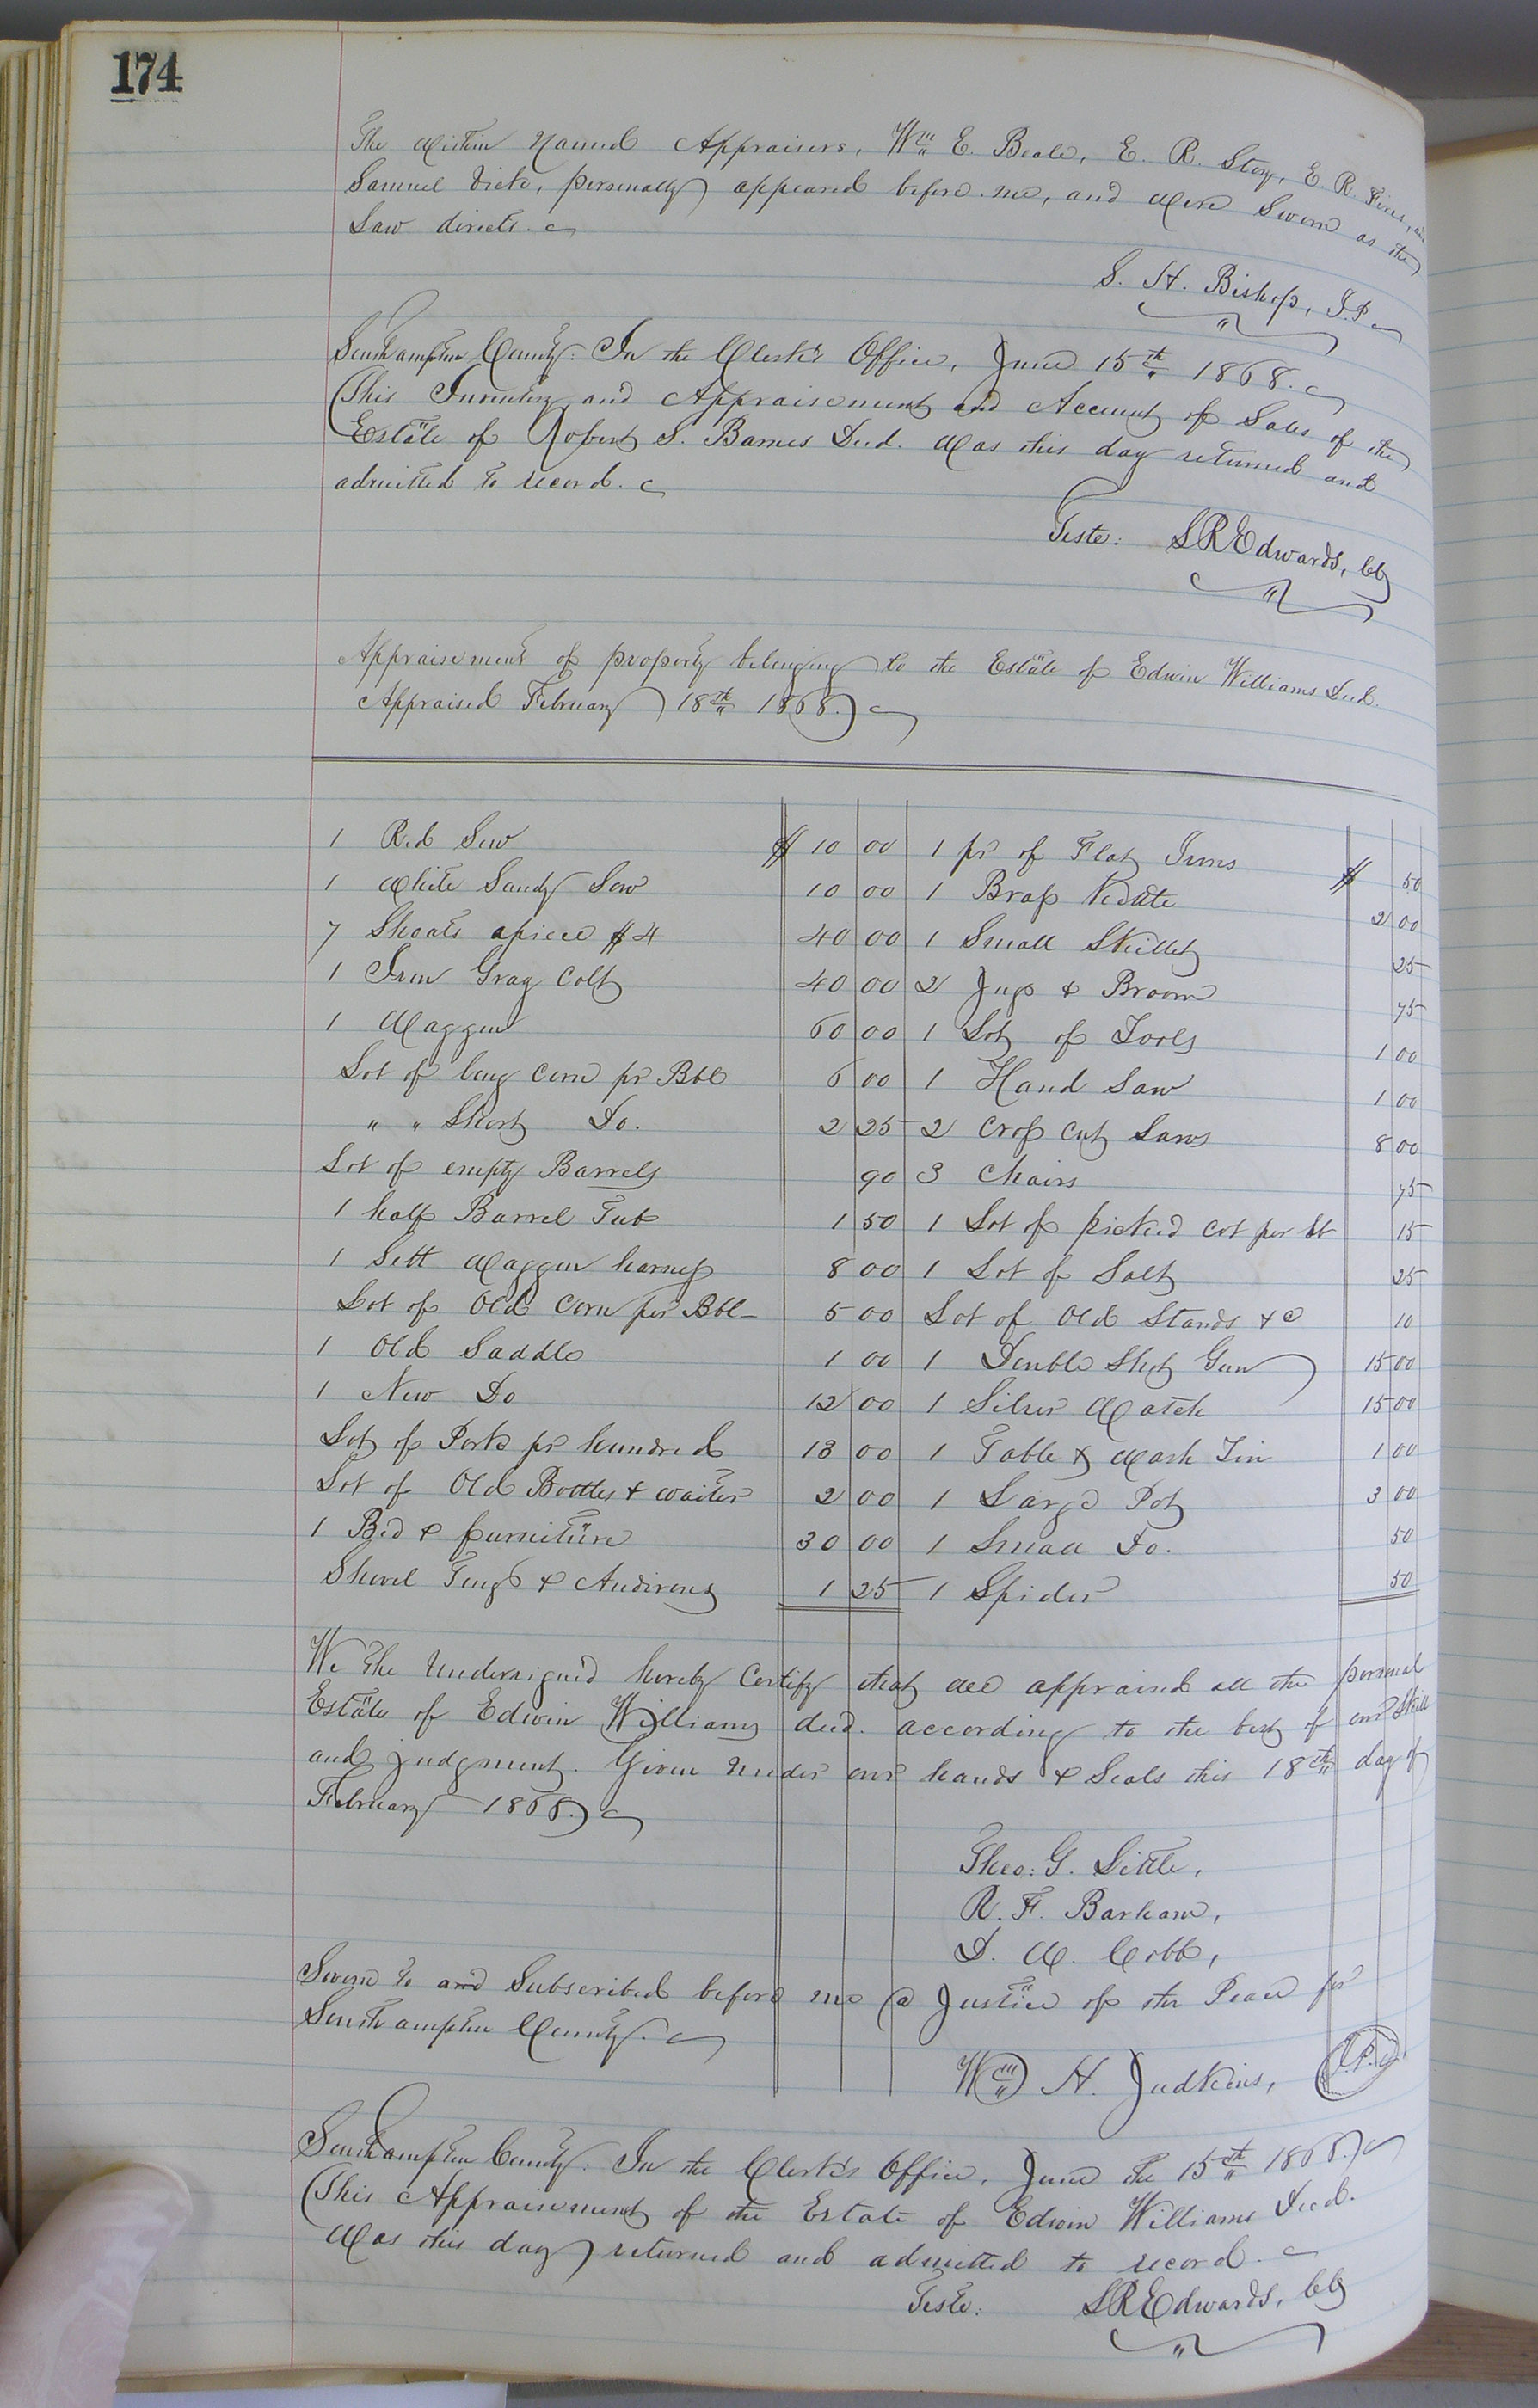 174
The within Named Appraisers, Wm E. Beale, E. R. Story, E. R. and
Samuel personally appeared before me, and were Sworn as the
Law directs.
S. H. Bishop, J.P.
Southampton County: In the Clerk's Office, June 15th 1868.
This Inventory and Appraisement and Account of Sales of the
Estate of Robert S. Barnes Decd. Was this day returned and
admitted to record.
Teste: LREdwards, Clk
Appraisement of property belonging to the Estate of Edwin Williams Decd.
Appraised February 18th 1868.
1 Red Sow $ 10 00 1 pr of Flat Irons $ 50
1 White Sandy Sow 10 00 1 Brass Kettle 2 00
7 Shoats apiece $4 40 00 1 Small Skillet 25
1 Iron Gray Colt 40 00 2 Jugs & Broom 75
1 Waggon 60 00 1 Lot of Tools 1 00
Lot of long Corn pr Bbl 6 00 1 Hand Saw 1 00
" " Short Do. 2 25 2 Cross Cut Saws 8 00
Lot of empty Barrels 90 3 Chairs 75
1 half Barrel Tub 1 50 1 Lot of picked Cot per lb 15
1 Sett Waggon harness 8 00 1 Lot of Salt 25
Lot of Old Corn per Bbl 5 00 Lot of Old Stands &c 10
1 Old Saddle 1 00 1 Double Shot Gun 15 00
1 New Do 12 00 1 Silver Watch 15 00
Lot of Pork pr hundred 13 00 1 Table & Wash Tin 1 00
Lot of Old Bottles & waiter 2 00 1 Large Pot 3 00
1 Bed & furniture 30 00 1 Small Do. 50
Shovel Tongs & Andirons 1 25 1 Spider 50
We the Undersigned hereby Certify that we appraised all the personal
Estate of Edwin Williams decd. according to the best of our Skill
and judgment. Given under our hands & Seals this 18th day of
February 1868.
Theo: G. Little,
R. F. Barham,
D. W. Cobb,
Sworn to and Subscribed before me a Justice of the Peace for
Southampton County.
Wm H. Judkins, J.P.
Southampton County: In the Clerk's Office, June the 15th 1868.
This Appraisement of the Estate of Edwin Williams Decd.
Was this day returned and admitted to record.
Teste: LREdwards, Clk